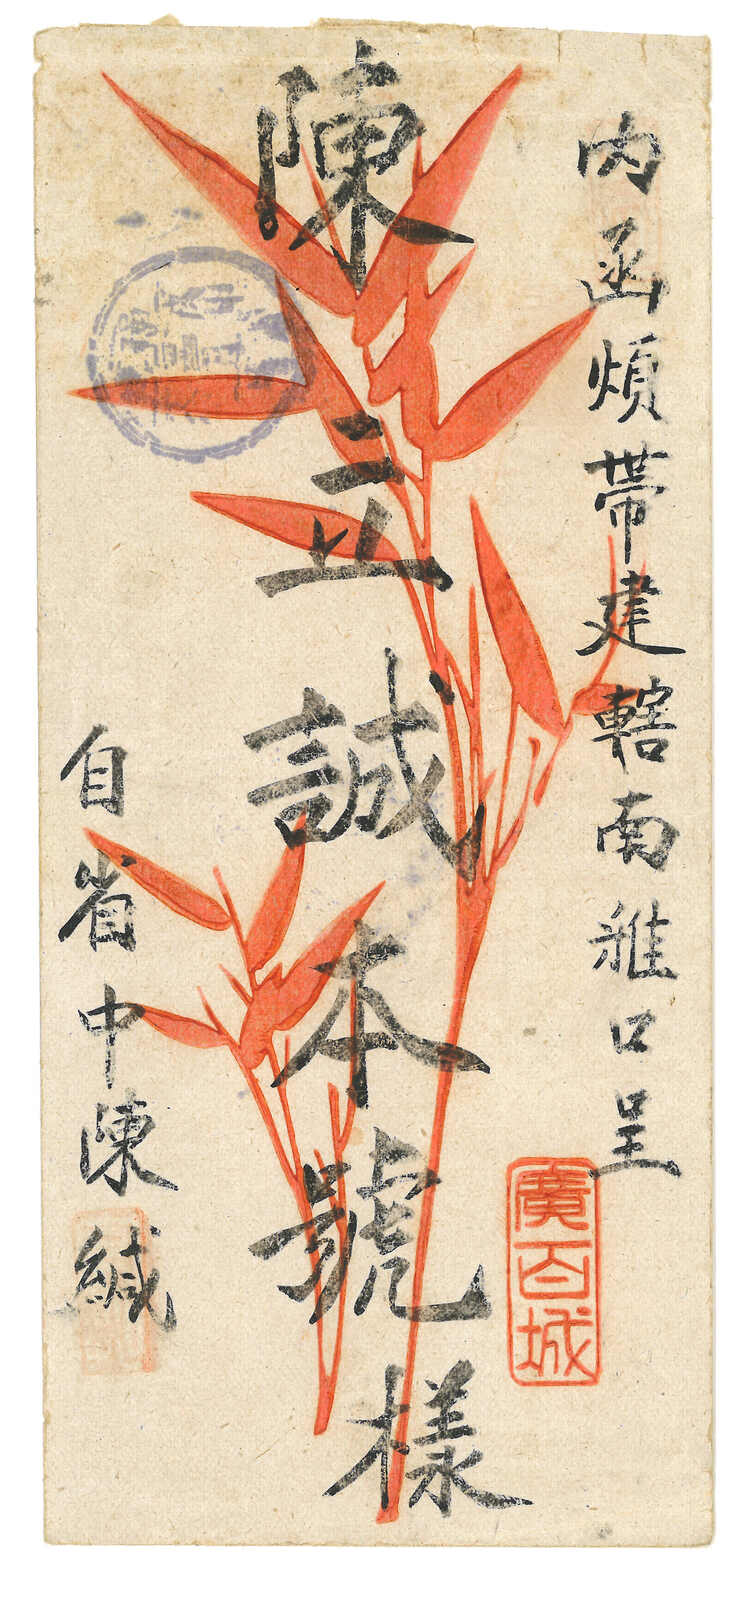 內函煩帶建轄南雅口呈
陳三立誠本號樣
自省中陳緘
廣百城